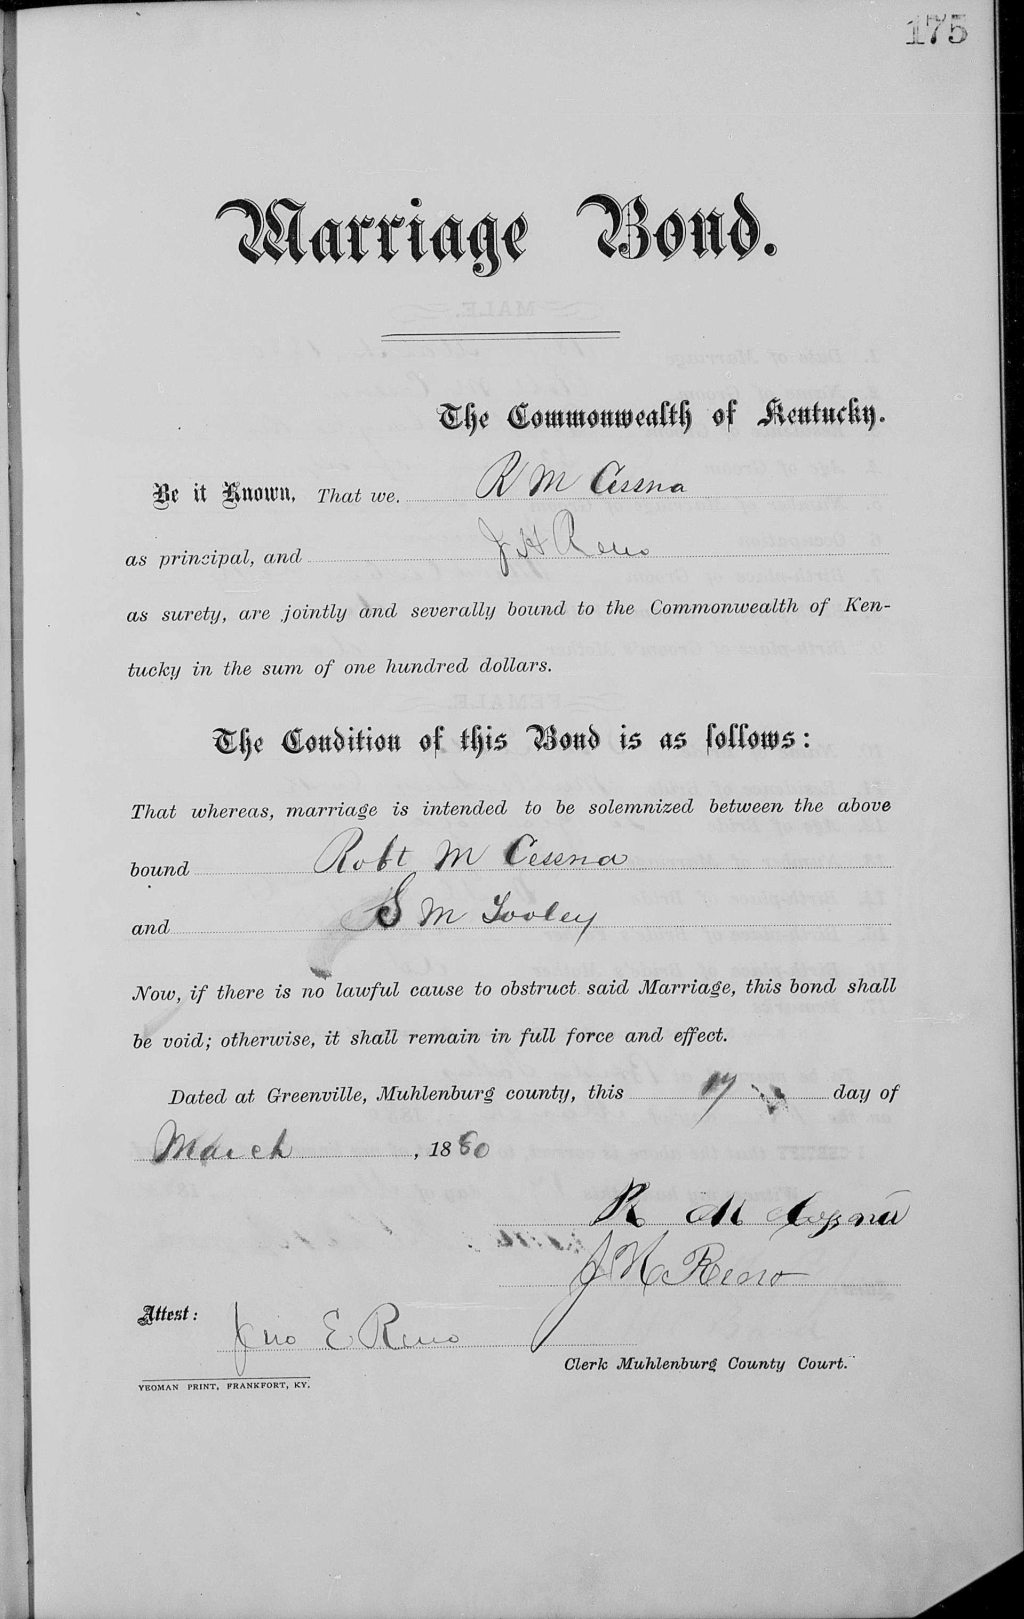 175
Marriage Bond.
The Commonwealth of Kentucky.
Be it Known, That we, R M Cessna
as principal, and J H Reno
as surety, are jointly and severally bound to the Commonwealth of Ken-
tucky in the sum of one hundred dollars.
The Condition of this Bond is as follows:
That whereas, marriage is intended to be solemnized between the above
bound Robt M Cessna
and S M Tooley
Now, if there is no lawful cause to obstruct said Marriage, this bond shall
be void; otherwise, it shall remain in full force and effect.
Dated at Greenville, Muhlenburg county, this 17 day of
March, 1880
R M
J H Reno
Attest: Jno E Reno
Clerk Muhlenburg County Court.
YEOMAN PRINT, FRANKFORT, KY.